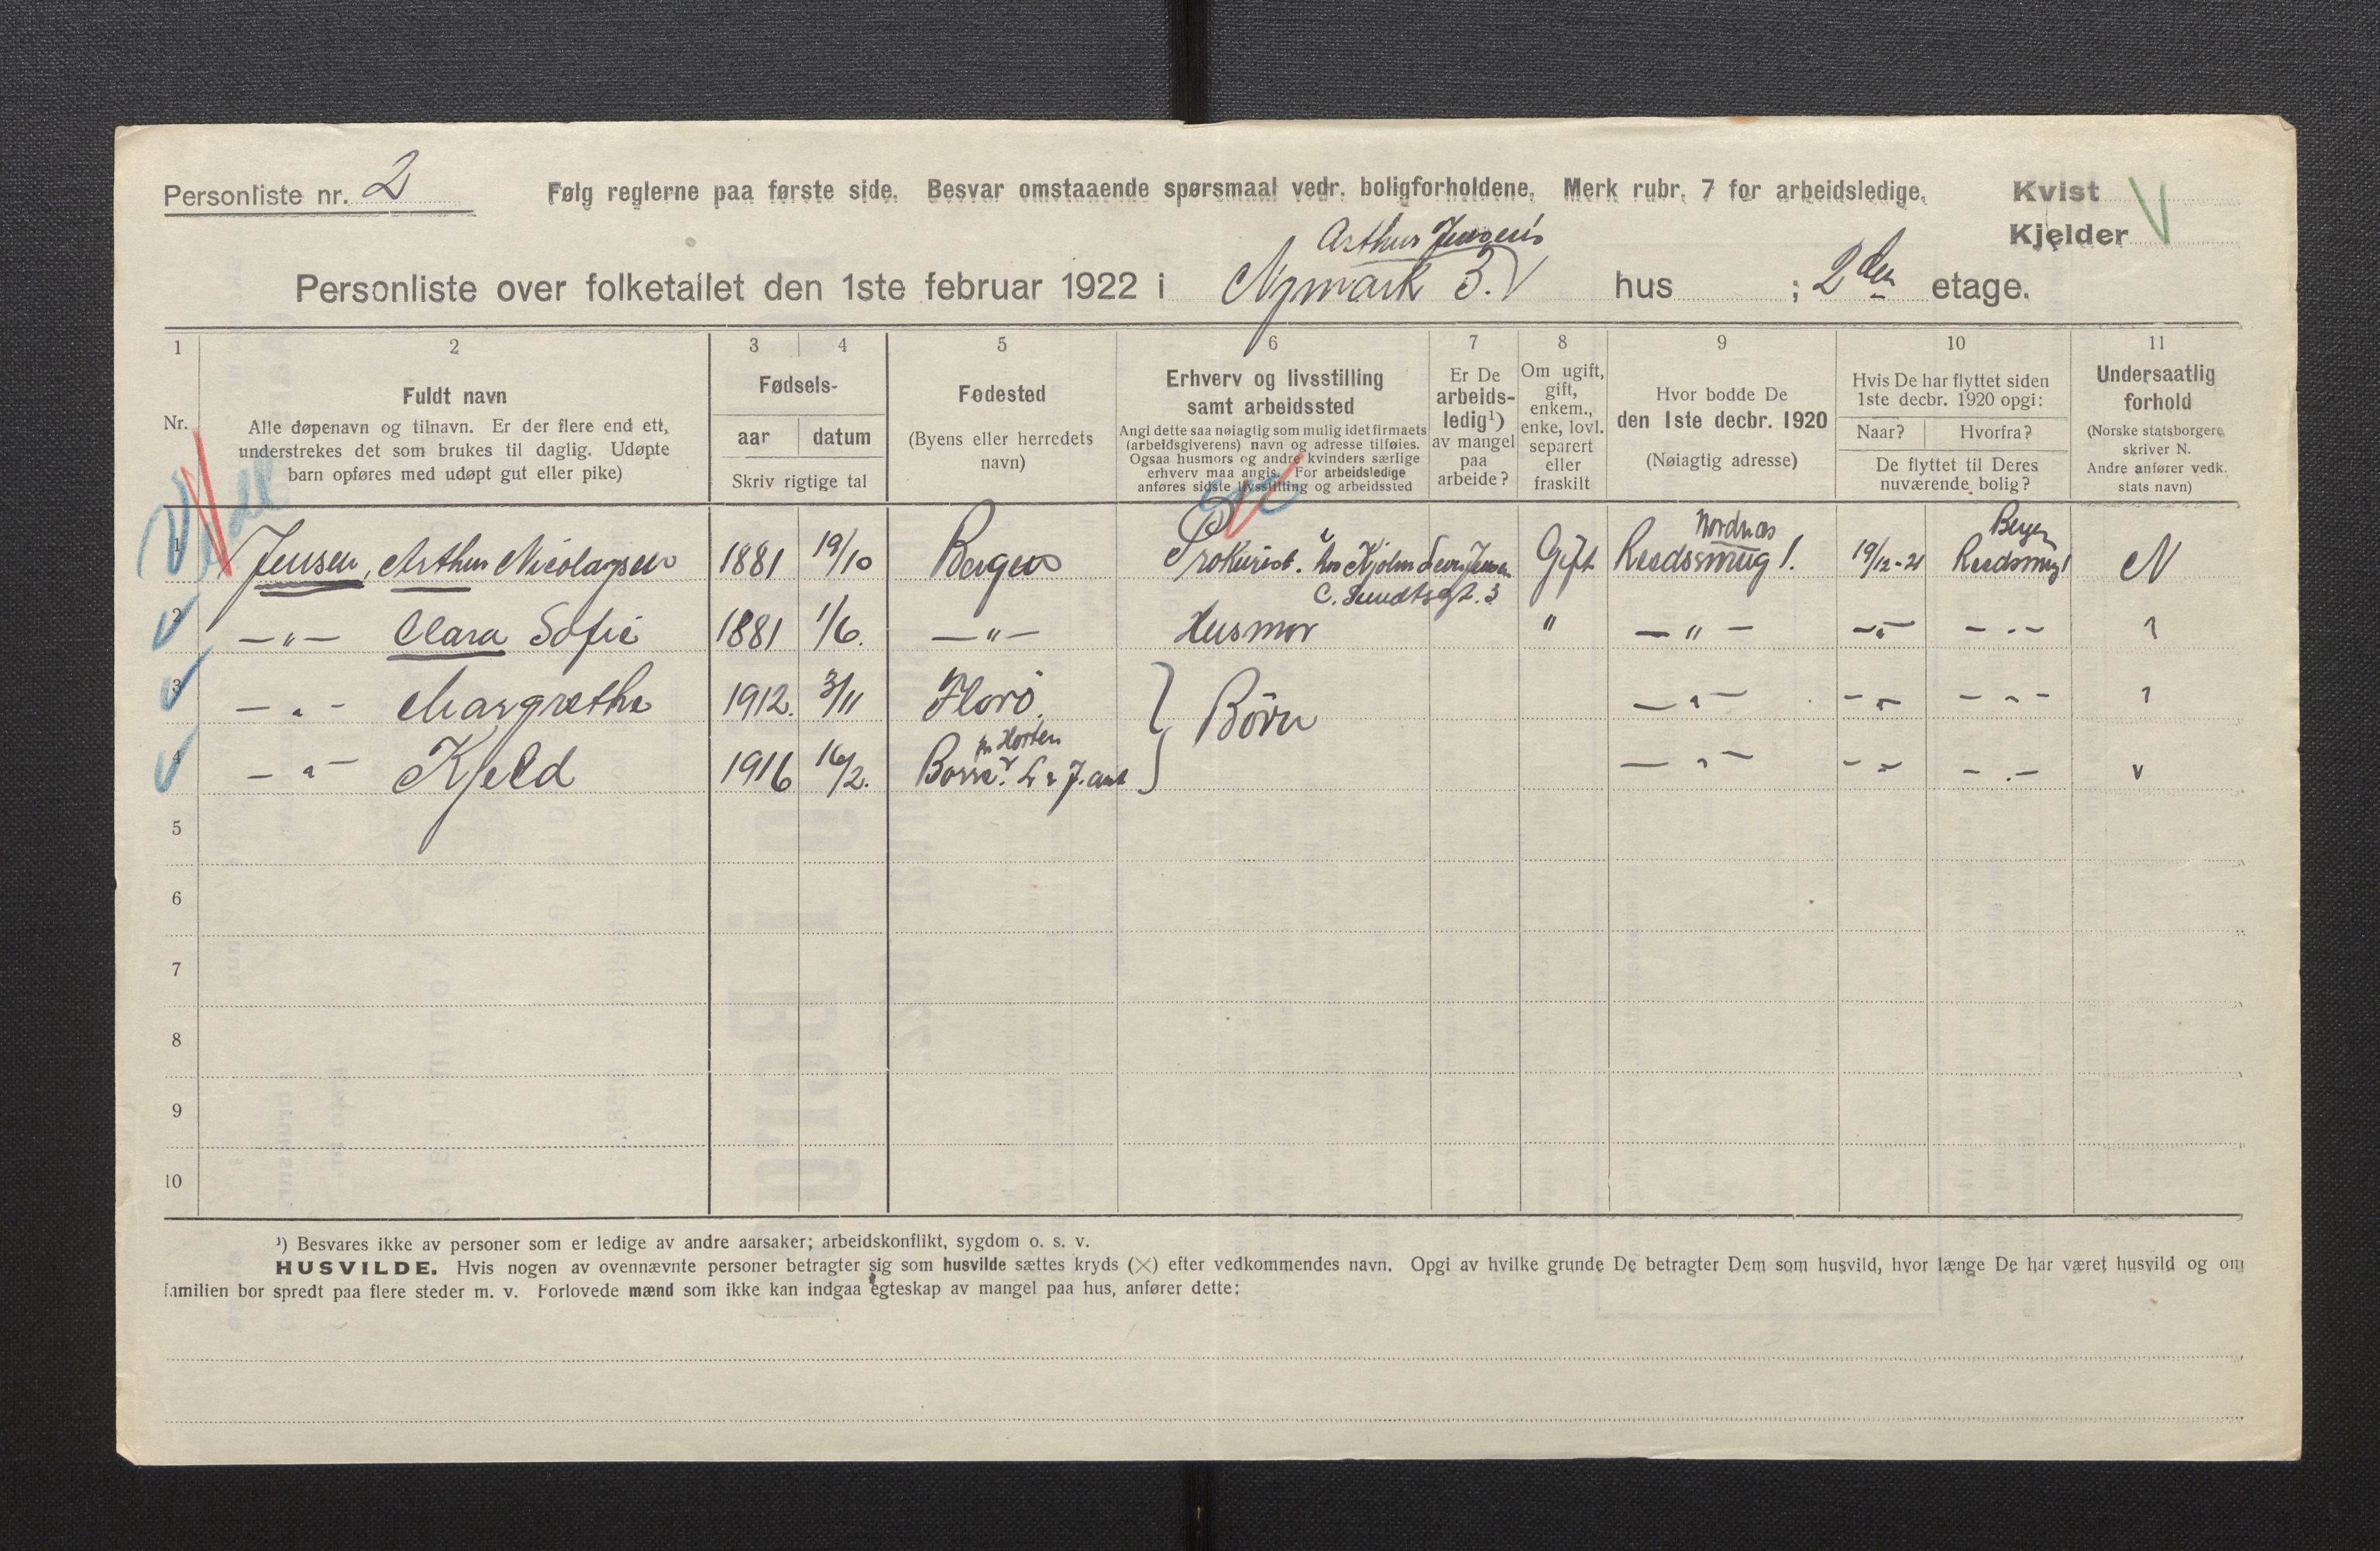 Personliste nr. 2 Følg reglerne paa første side. Besvar omstaaende spørsmaal vedr. boligforholdene. Merk rubr. 7 for arbeidsledige. Kvist
Kjelder
Arthur Jensen's
Personliste over folketallet den 1ste februar 1922 i Nymark 3. hus ; 2den etage.
1 2 3 4 5 6 7 8 9 10 11
Nr.
Fuldt navn
Alle døpenavn og tilnavn. Er der flere end ett,
understrekes det som brukes til daglig. Udøpte
barn opføres med udøpt gut eller pike)
Fødsels-
aar datum
Skriv rigtige tal
Fødested
(Byens eller herredets
navn)
Erhverv og livsstilling
samt arbeidssted
Angi dette saa nøiagtig som mulig idet firmaets
(arbeidsgiverens) navn og adresse tilføies.
Ogsaa husmors og andre kvinders særlige
erhverv maa angis. For arbeidsledige
anføres sidste livsstilling og arbeidssted
Er De
arbeids-
ledig¹)
av mangel
paa
arbeide?
Om ugift,
gift,
enkem.,
enke, lovl.
separert
eller
fraskilt
Hvor bodde De
den 1ste decbr. 1920
(Nøiagtig adresse)
Hvis De har flyttet siden
1ste decbr. 1920 opgi:
Naar? Hvorfra?
De flyttet til Deres
nuværende bolig?
Undersaatlig
forhold
(Norske statsborgere
skriver N.
Andre anfører vedk.
stats navn)
Nordnæs Bergen
1 Jensen, Arthur Nicolaysen 1881 19/10 Bergen Prokurist. hos Gift 1. 19/12-21 N
C. Sundtsgt. 3
2 —"— Clara Sofie 1881 1/6. —"— Husmor " —"— —"— —"— "
3 —"— Margrethe 1912. 3/11 Florø. } Børn —"— —"— —"— "
pr Horten
4 —"— Kjeld 1916 16/2. Borre —"— —"— —"— "
5
6
7
8
9
10
¹) Besvares ikke av personer som er ledige av andre aarsaker; arbeidskonflikt, sygdom o. s. v.
HUSVILDE. Hvis nogen av ovennævnte personer betragter sig som husvilde sættes kryds (×) efter vedkommendes navn. Opgi av hvilke grunde De betragter Dem som husvild, hvor længe De har været husvild og om
familien bor spredt paa flere steder m. v. Forlovede mænd som ikke kan indgaa egteskap av mangel paa hus, anfører dette: